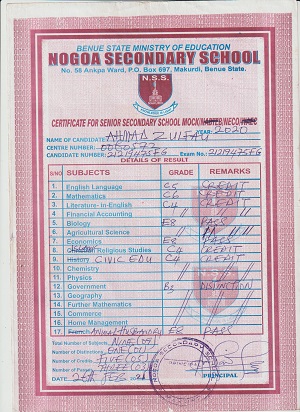 BENUE STATE MINISTRY OF EDUCATION
NOGOA SECONDARY SCHOOL
No. 56 Ankpa Ward, P.O. Box 697, Makurdi, Benue State.
N.S.S.
CERTIFICATE FOR SENIOR SECONDARY SCHOOL MOCK/NABTEB/NECO/WAEC
YEAR: 2020
NAME OF CANDIDATE: AHMAD ZULFAU
CENTRE NUMBER:
CANDIDATE NUMBER: 21219475FG Exam No.: 21219475FG
DETAILS OF RESULT
S/NO SUBJECTS GRADE REMARKS
1. English Language C5 CREDIT
2. Mathematics C6 CREDIT
3. Literature- In-English C4 CREDIT
4. Financial Accounting
5. Biology E8 PASS
6. Agricultural Science
7. Economics E8 PASS
8. Religious Studies C4 CREDIT
9. History CIVIC EDU C4 CREDIT
10. Chemistry
11. Physics
12. Government B2 DISTINCTION
13. Geography
14. Further Mathematics
15. Commerce
16. Home Management
17. French ANIMAL HUSBANDRY E8 PASS
Total Number of Subjects: NINE (09)
Number of Distinctions: ONE (01)
Number of Credits: FIVE (05)
Number of Passes: THREE (03)
DATE: FEB
PRINCIPAL